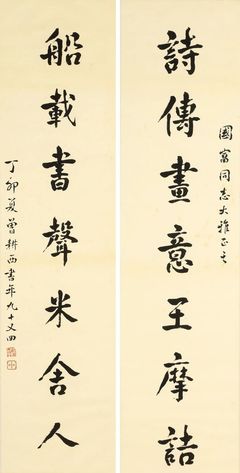 國富同志大雅正之
詩傳畫意王摩詰
船載書聲米舍人
丁卯夏曾耕西書年九十又四